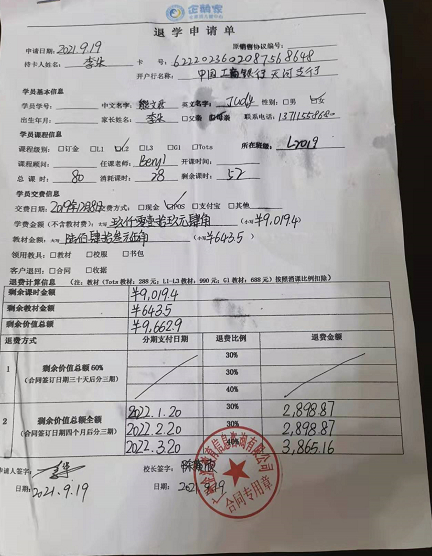 企鹅家
退学申请单
申请日期:2021.9.19 原销售协议编号:
持卡人姓名: 李朱 卡 号: 6222023602087568648
开户行名称: 中国工商银行天河支行
学员基本信息
学员学号: 中文名字: 英文名字: Judy 性别: □男 ☑女
出生年月: 家长姓名: 李朱 □父亲 ☑母亲 联系电话:
学员课程信息
课程级别: □订金 □L1 ☑L2 □L3 □G1 □Tots 所在班级: L2019
课程顾问: 任课老师: Beryl 开课时间:
总 课 时: 80 消耗课时: 28 剩余课时: 52
学员交费信息
交费日期: 交费方式: □现金 ☑POS □支付宝 □其他
学费金额(不含教材费):大写 玖仟零壹拾玖元肆角 (小写¥9,019.4)
教材金额:大写 陆佰肆拾叁元伍角 (小写¥643.5)
领用教具: □教材 □校服 □书包
客户退回: □合同 □收据
退费计算信息 (注:教材(Tots教材:288元;L1-L3教材:990元;G1教材:688元)按照消课比例扣除)
剩余课时金额 ¥9,019.4
剩余教材金额 ¥643.5
剩余价值总额 ¥9,662.9
退费方式 分期支付日期 退费比例 退费金额
1 剩余价值总额60% 30%
(合同签订日期三十天后分三期) 30%
40%
2 剩余价值总额全额 2022.1.20 30% 2,898.87
(合同签订日期四个月后分三期) 2022.2.20 30% 2,898.87
2022.3.20 40% 3,865.16
申请人签字: 校长签字:
日期: 2021.9.19 日期: 2021.9.19
合同专用章